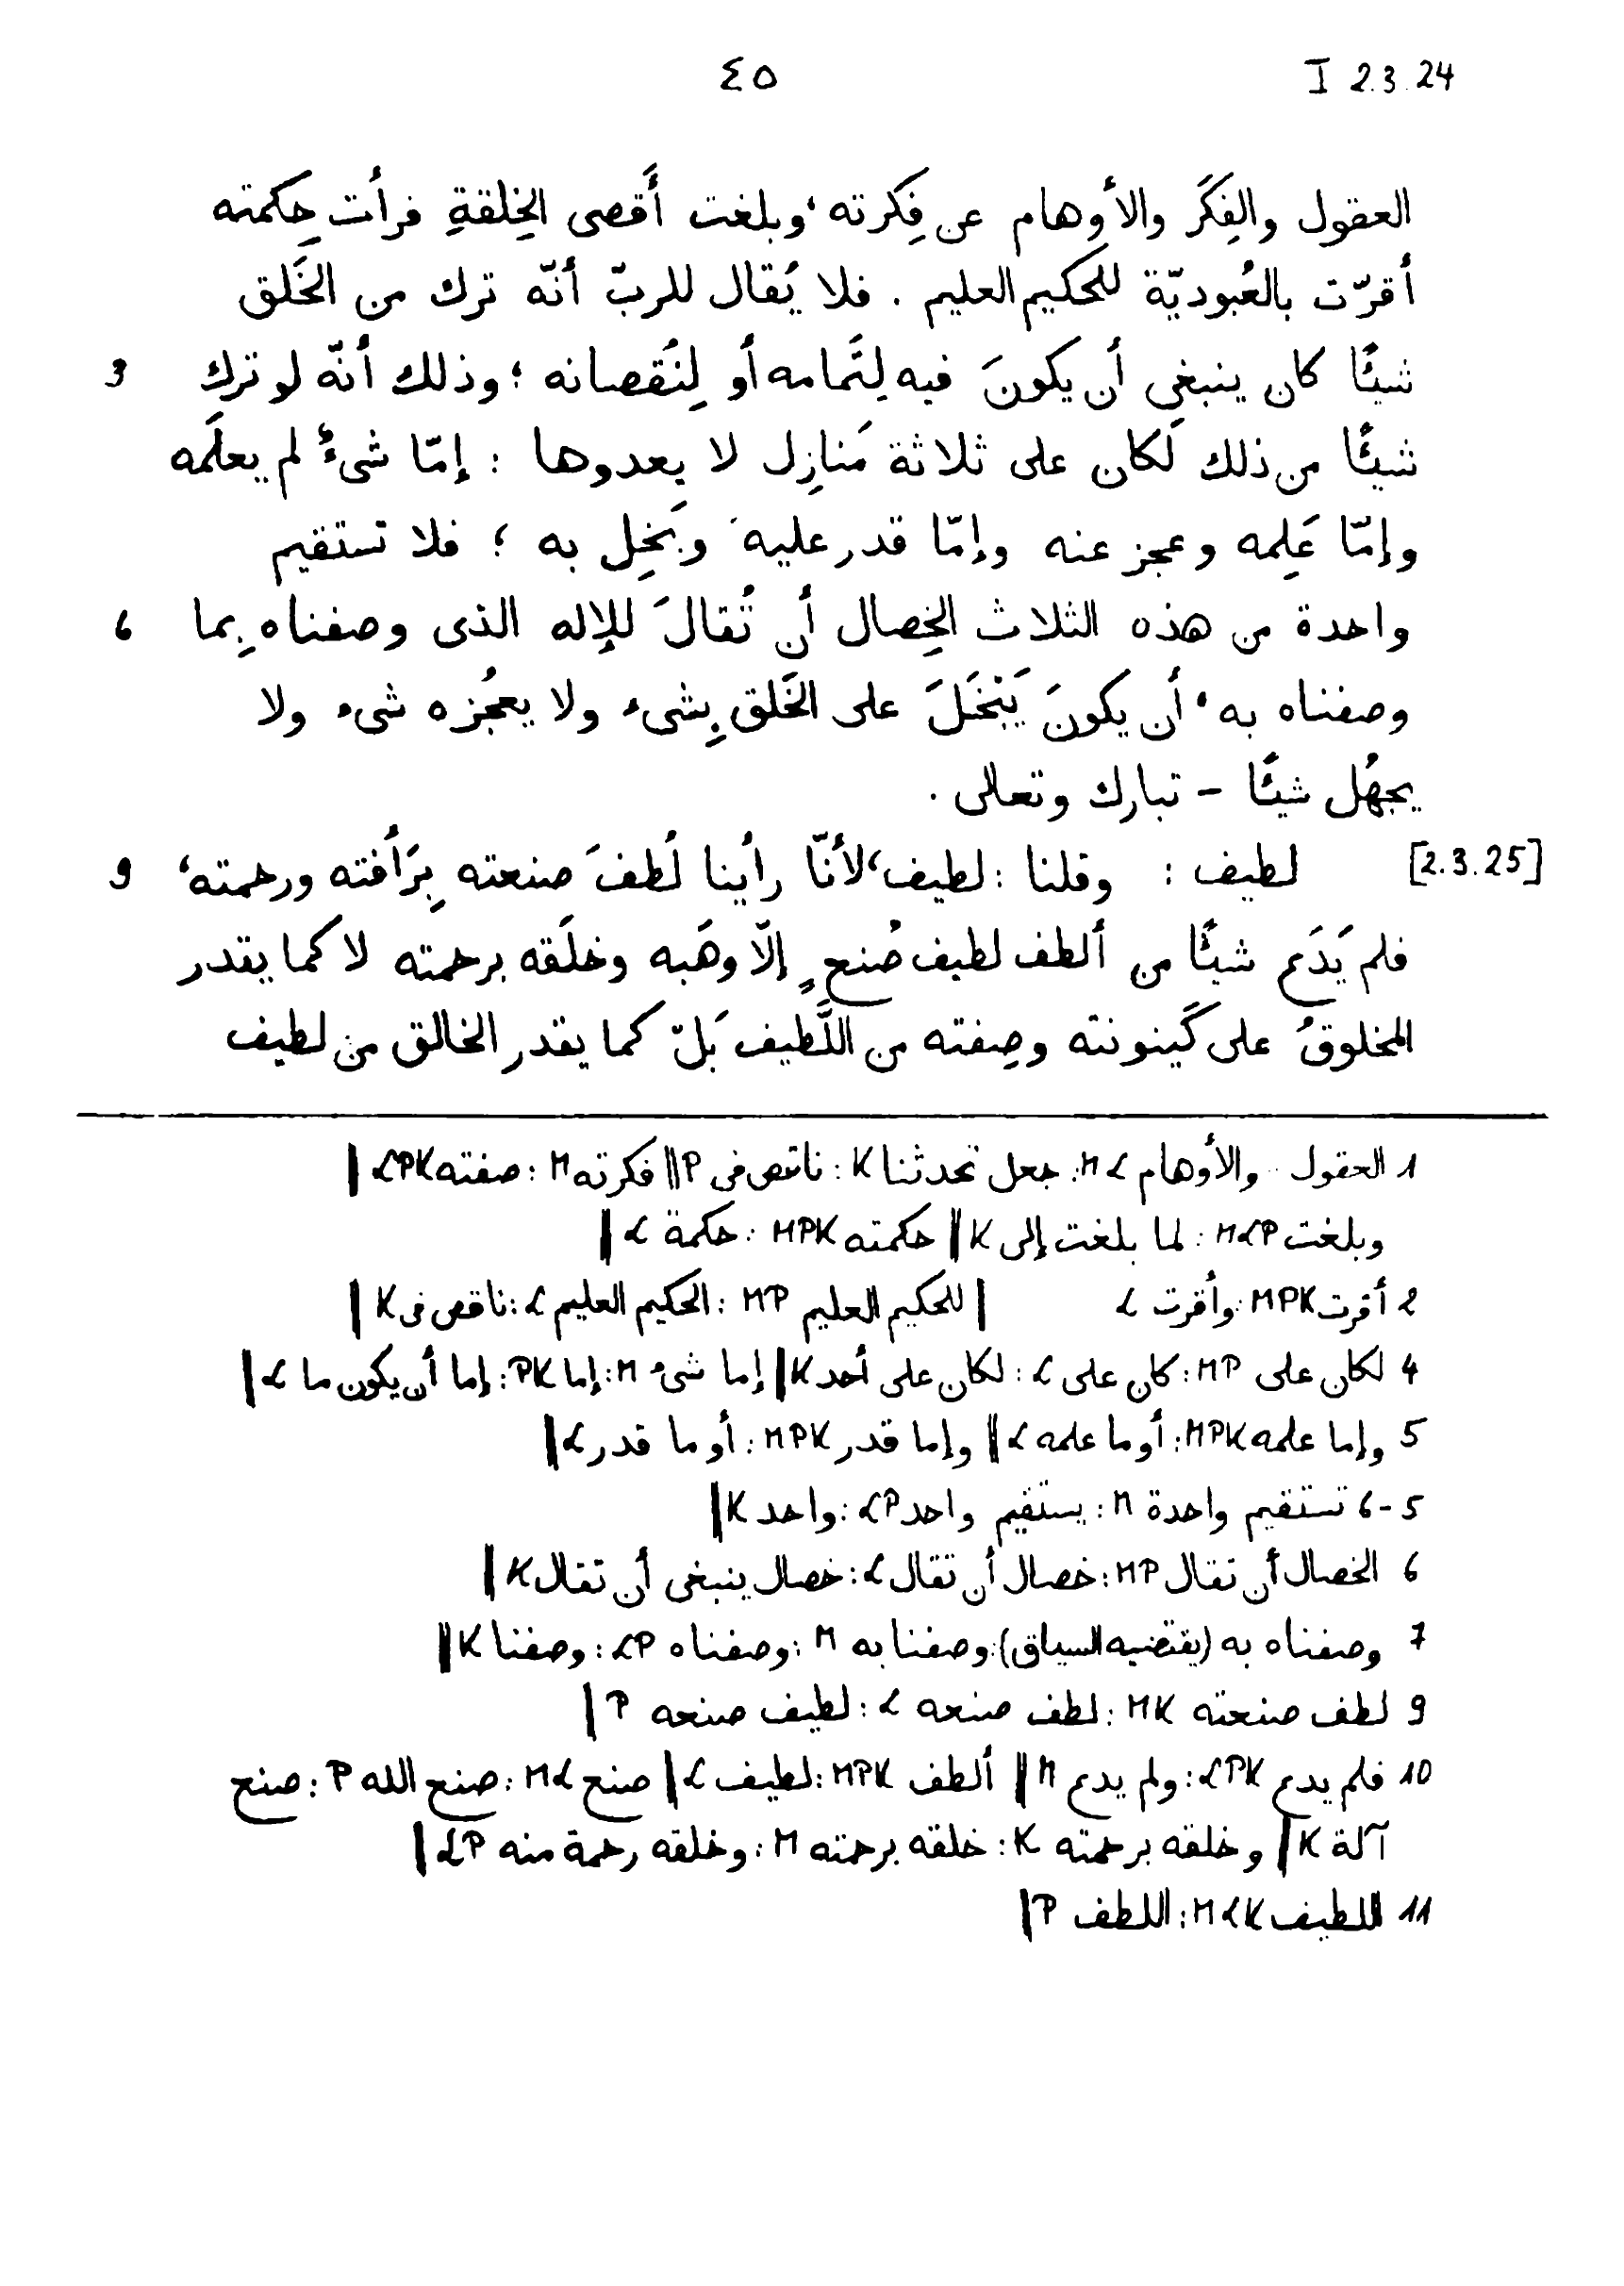 I 2.3.24 ٤٥
العقول والفِكَرَ والأوهام عن فِكرته، وبلغت أَقصى الخِلقةِ فرأت حِكمته
أقرّت بالعُبوديّة للحكيم العليم . فلا يُقال للربّ أنّه ترك من الخَلق
شيئًا كان ينبغي أن يكونَ فيه لِتَمامه أو لِنُقصانه ؛ وذلك أنّه لو ترك 3
شيئًا من ذلك لَكان على ثلاثة مَنازِل لا يعدوها : إمّا شىءٌ لم يعلَمه
وإمّا عَلِمه وعجز عنه وإمّا قدر عليه وبَخِل به ؛ فلا تستقيم
واحدة من هذه الثلاث الخِصال أن تُقالَ للإله الذى وصفناه بِما 6
وصفناه به، أن يكونَ يَبْخَلَ على الخَلق بِشىء ولا يعجُزه شىء ولا
يجهُل شيئًا - تبارك وتعالى .
[2.3.25] لطيف : وقلنا : لطيف، لأنّا رأينا لُطفَ صنعته بِرَأفته ورحمته، 9
فلم يَدَع شيئًا من ألطف لطيف صُنعٍ إلّا وهَبه وخلَقه برحمته لا كما يقدر
المخلوقُ على كَينونته وصِفته من اللَّطيف بَلْ كما يقدر الخالق من لطيف
1 العقول .. والأوهام ML: جعل تحدثنا K: ناقص فى P || فكرته M: صفته LPK |
وبلغت MLP: لما بلغت إلى K || حكمته MPK: حكمة L ||
2 أقرت MPK: وأقرت L | للحكيم العليم MP: الحكيم العليم L: ناقص فى K |
4 لكان على MP: كان على L: لكان على أحد K || إما شىء M: إما PK: إما أن يكون ما L |
5 وإما علمه MPK: أو ما علمه L || وإما قدر MPK: أو ما قدر L |
5-6 تستقيم واحدة M: يستقيم واحد LP: واحد K |
6 الخصال أن تقال MP: خصال أن تقال L: خصال ينبغى أن تقال K |
7 وصفناه به (يقتضيه السياق): وصفنا به M: وصفناه LP: وصفنا K ||
9 لطف صنعته MK: لطف صنعه L: لطيف صنعه P |
10 فلم يدع LPK: ولم يدع M || ألطف MPK: لطيف L | صنع ML: صنع الله P: صنع
آلة K | وخلقه برحمته K: خلقه برحمته M: وخلقه رحمة منه LP |
11 اللطيف MLK: اللطف P |